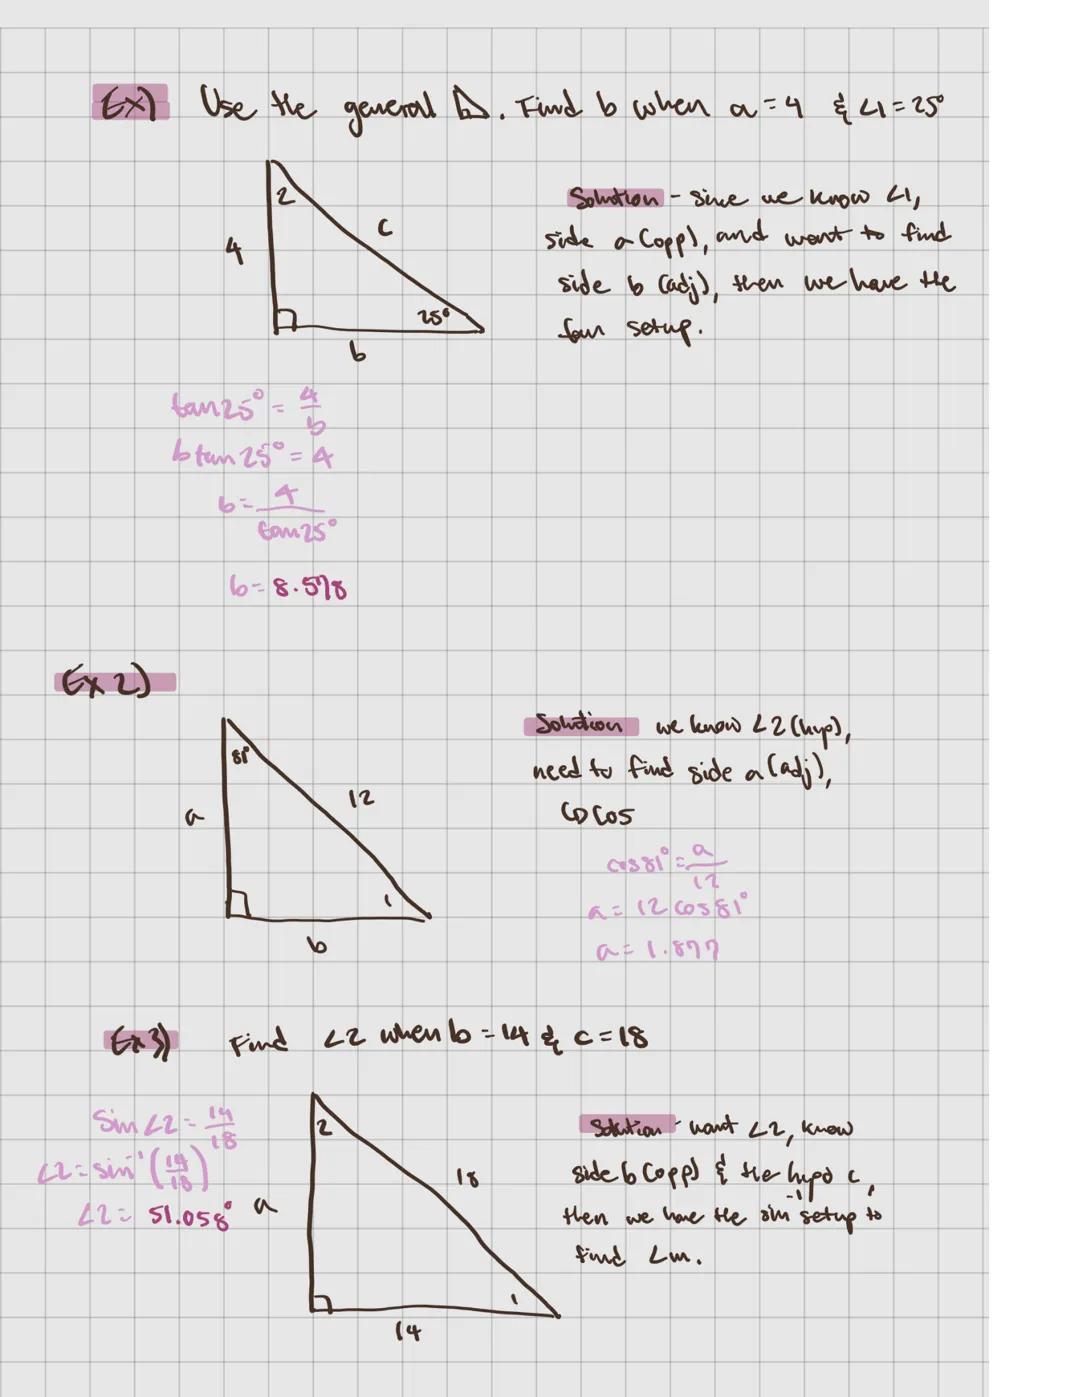 Ex) Use the general ◺. Find b when a = 4 & ∠1 = 25°
2
c
4
25°
b
Solution - since we know ∠1,
side a (opp), and want to find
side b (adj), then we have the
tan setup.
tan 25° = 4/b
b tan 25° = 4
b = 4/tan 25°
b = 8.578
Ex 2)
81°
12
a
1
b
Solution we know ∠2 (hyp),
need to find side a (adj),
cos
cos 81° = a/12
a = 12 cos 81°
a = 1.877
Ex 3) Find ∠2 when b = 14 & c = 18
Sin ∠2 = 14/18
∠2 = sin⁻¹(14/18)
∠2 = 51.058°
2
18
a
1
14
Solution - want ∠2, know
side b (opp) & the hypo c,
then we have the sin⁻¹ setup to
find ∠m.